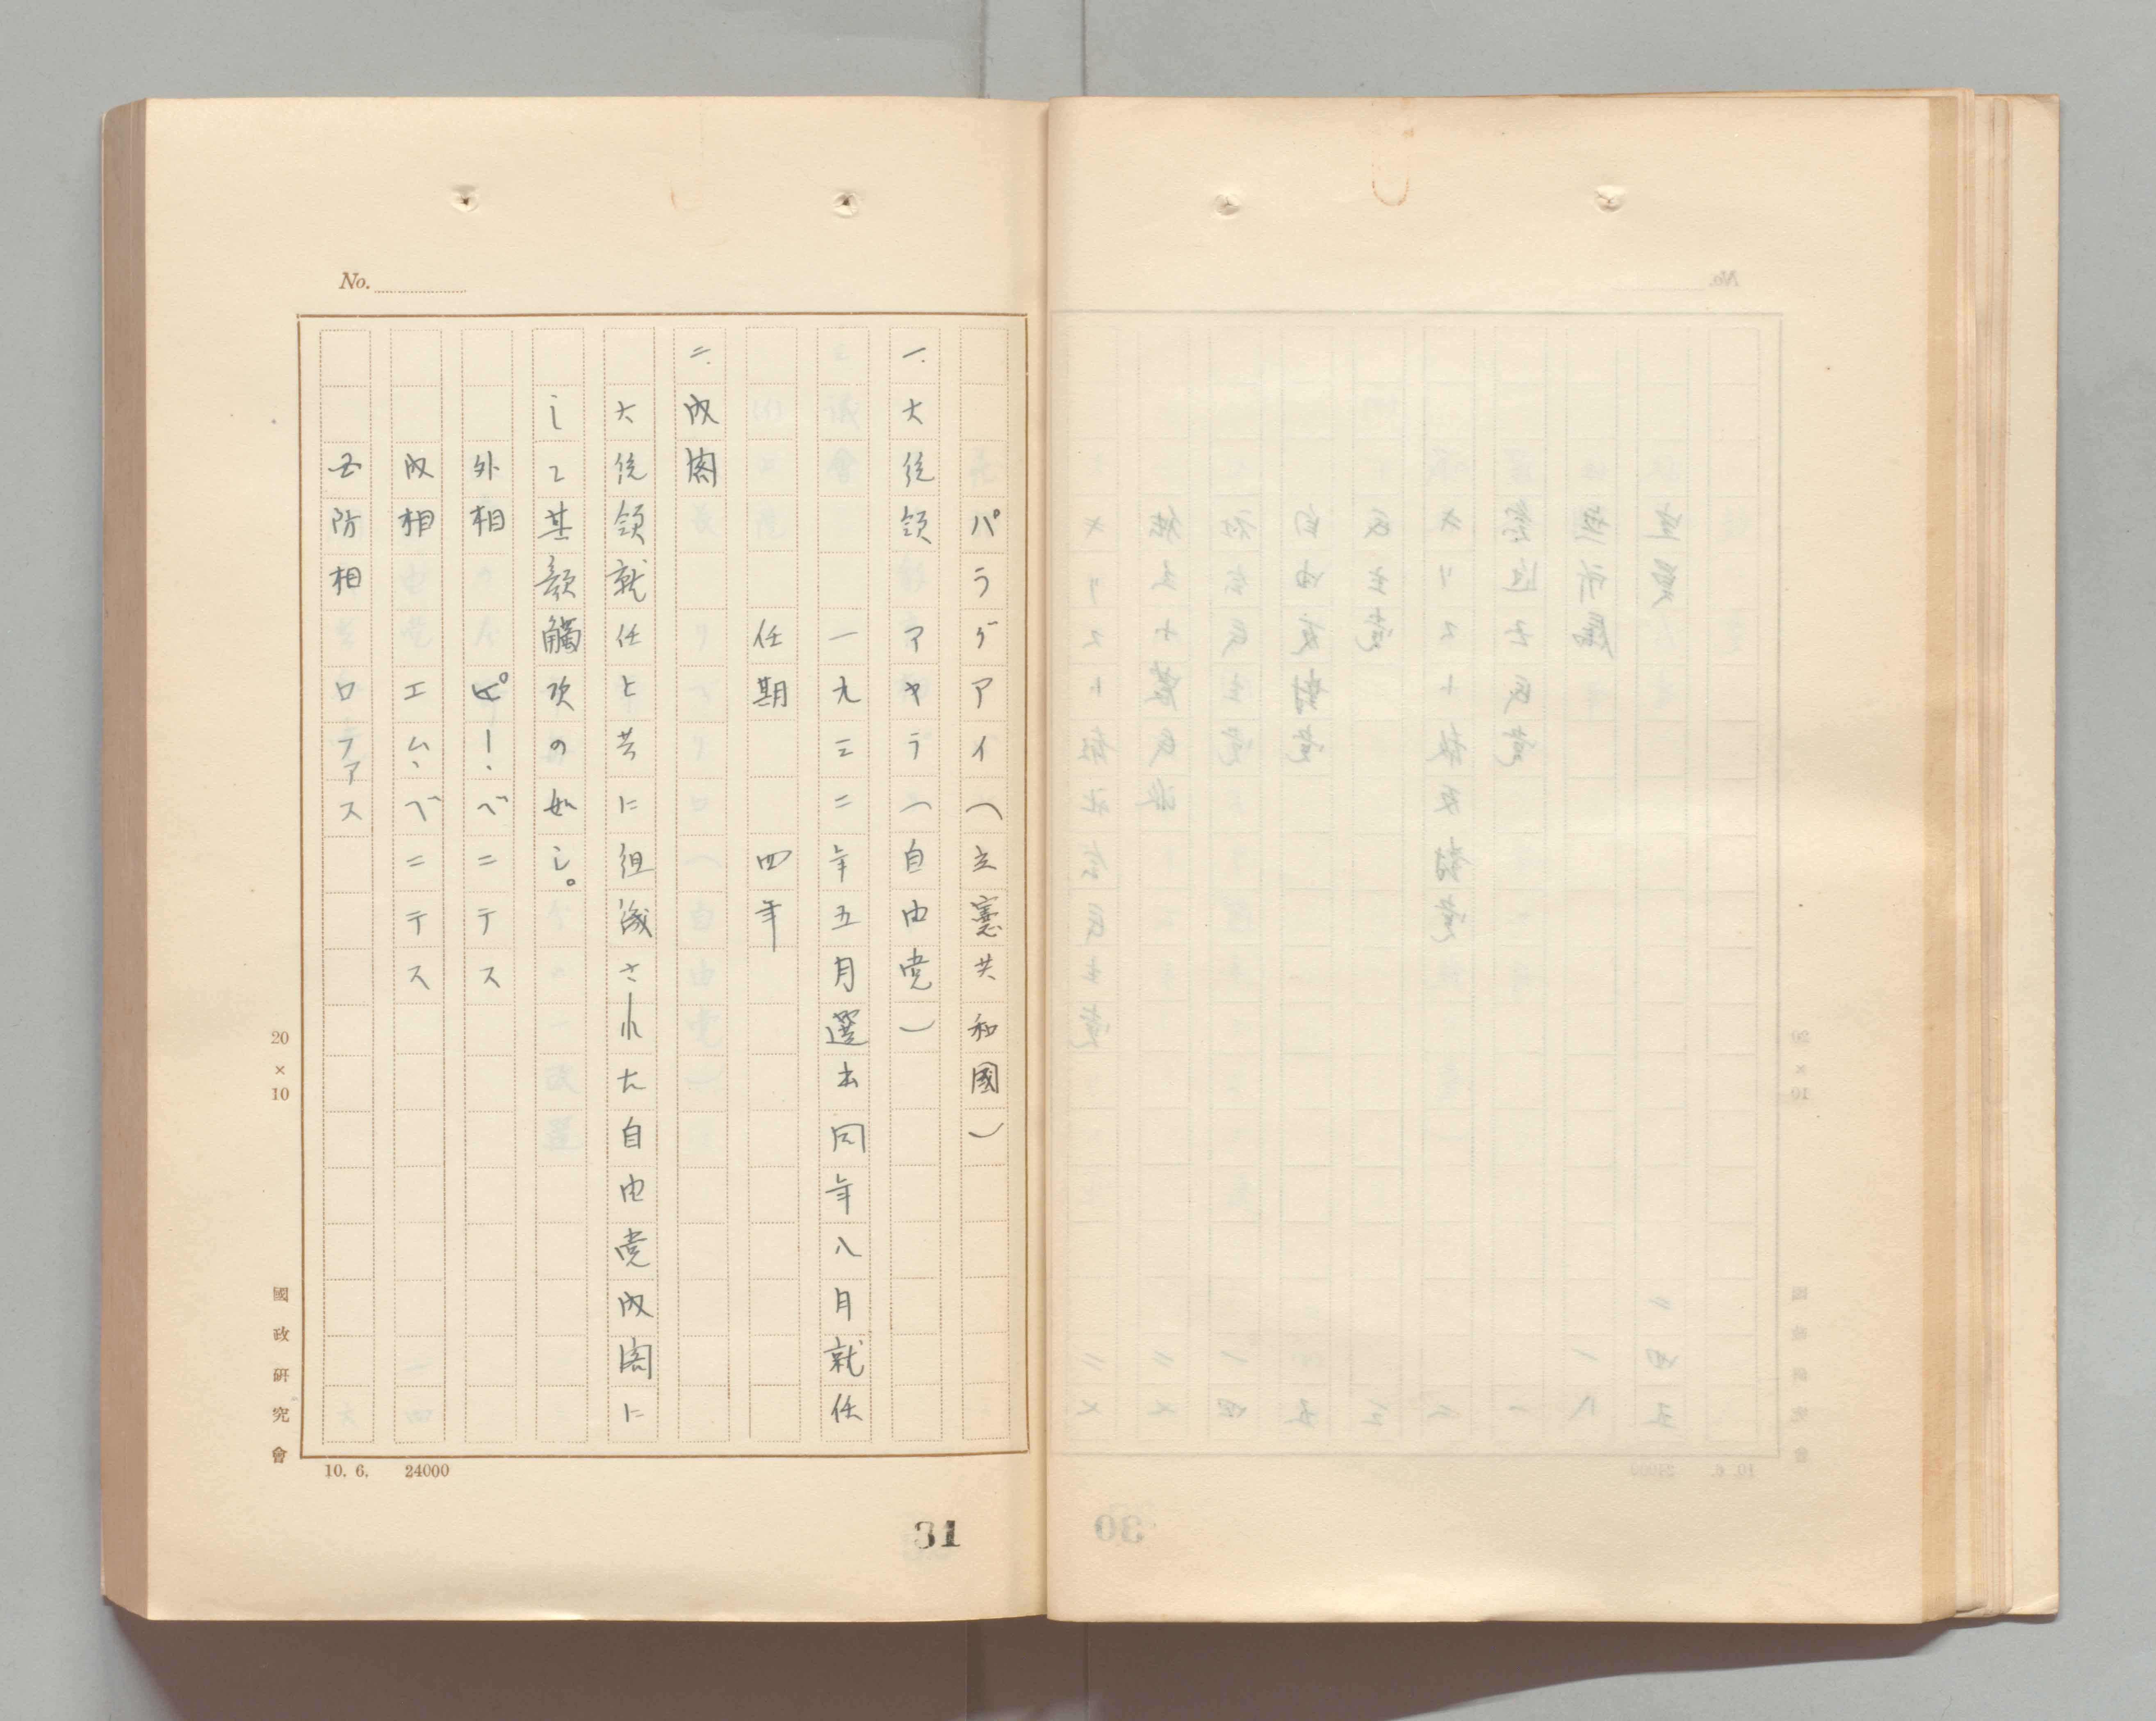 No.
パラグアイ(立憲共和國)
一.大統領 アヤラ(自由党)
一九三二年五月選出同年八月就任
任期 四年
二.内閣
大統領就任と共に組織された自由党内閣に
して其顔觸次の如し。
外相 ピー.ベニテス
内相 エム、ベニテス
国防相 ロファス
20×10
國政研究會
10. 6. 24000
31